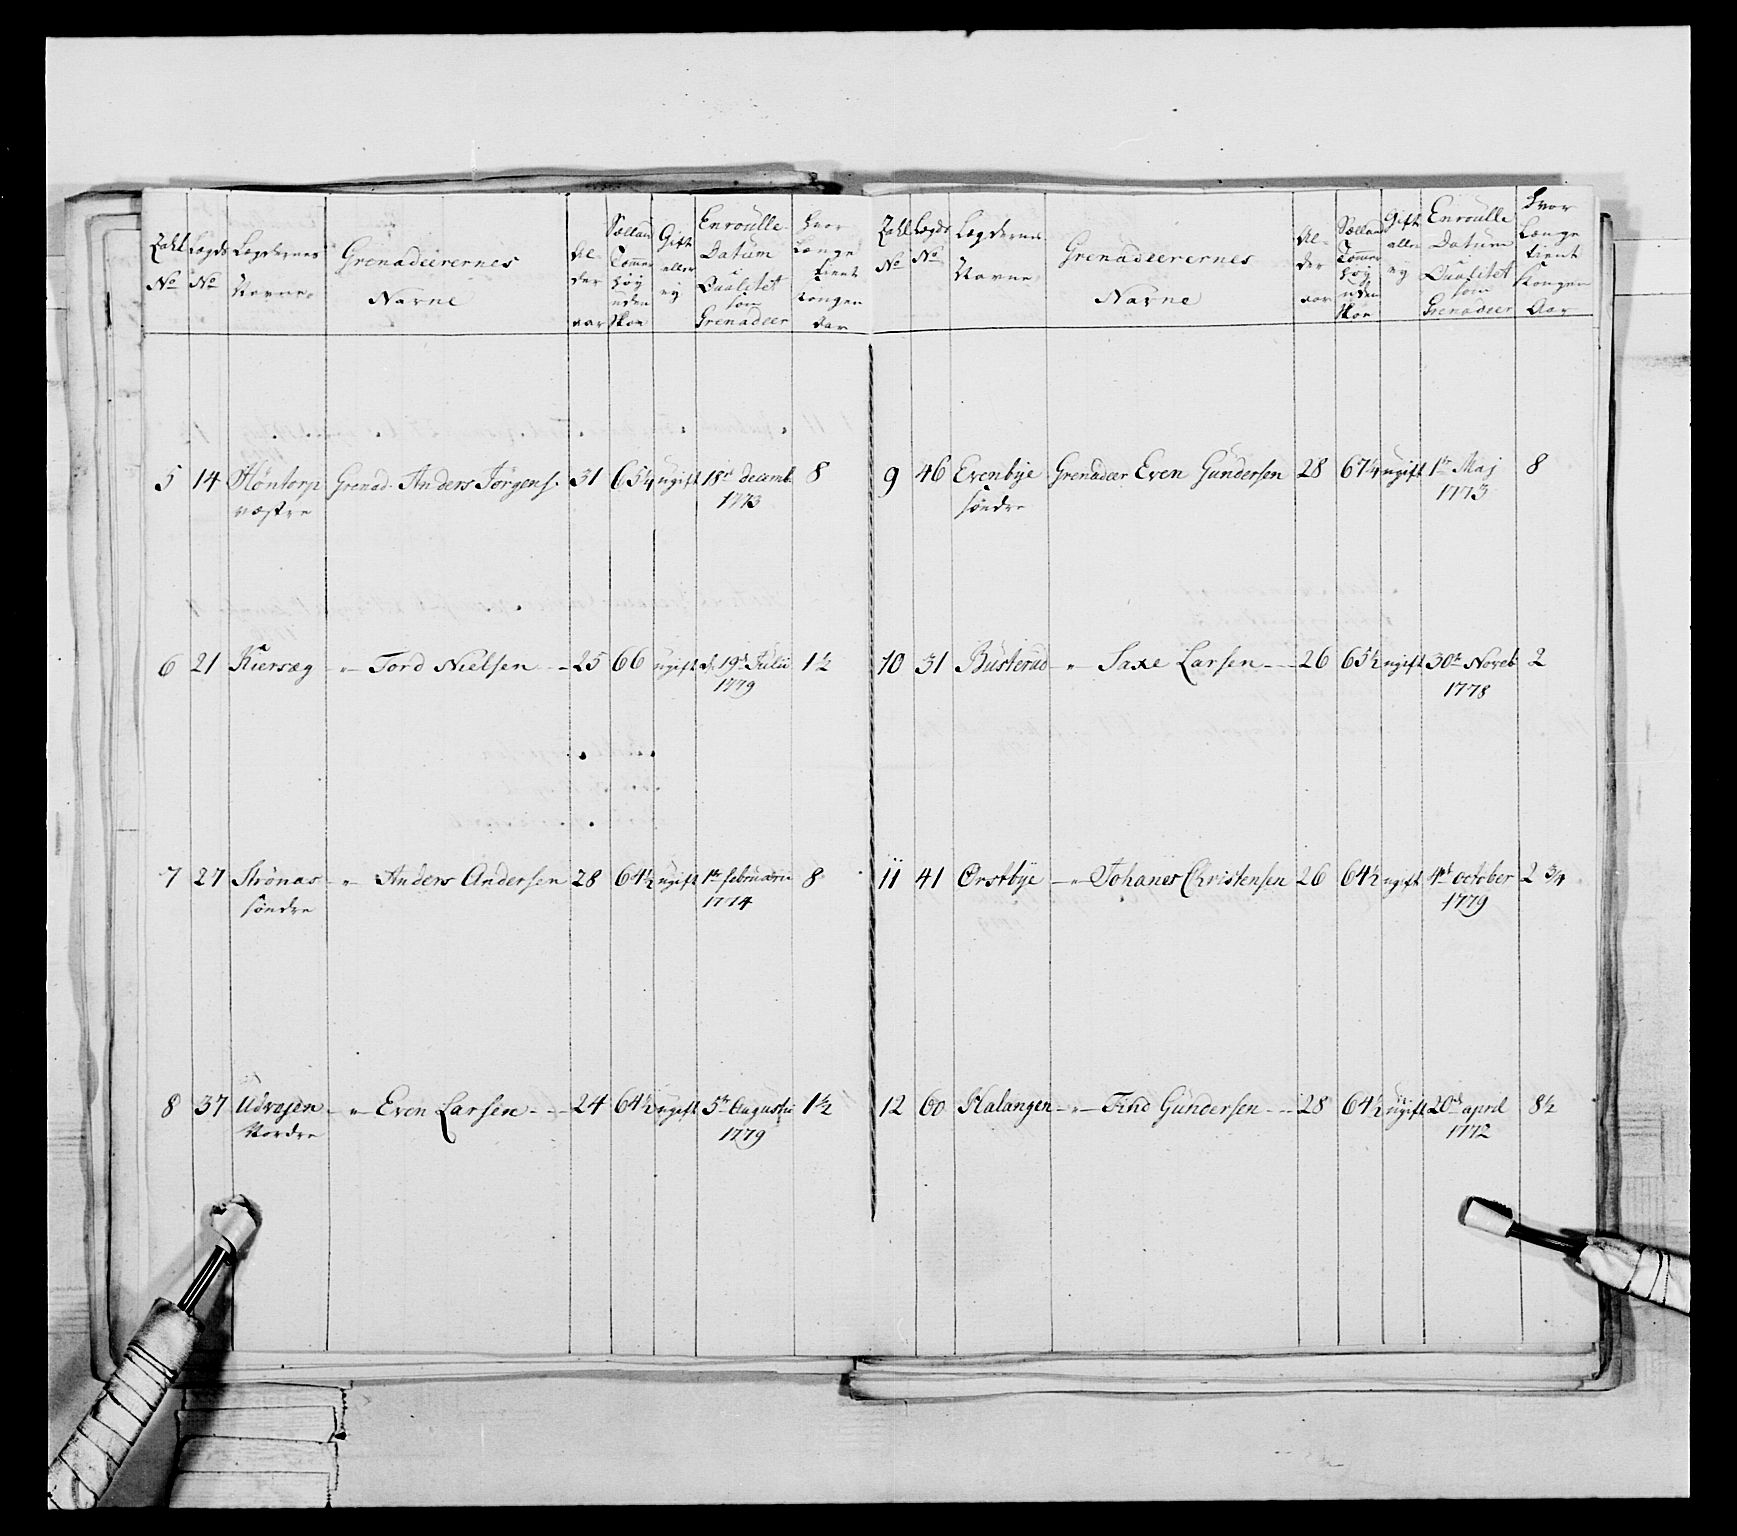 Zahl No | Lægds No | Lægdernes Navne | Grenadeerernes Navne | Alder aar | Sællan Tommer høy uden Skoe | Gift eller ey | Enroulle Datum Qualitet som Grenadeer | Hvor Længe tient Kongen Aar
5 | 14 | Høntorp | Grenad. Anders Jørgens. | 31 | 65¼ | ugift | 18de decemb. | 8
væstre | 1773
6 | 21 | Kiersæg | -"- Tord Nielsen | 25 | 66 | ugift | d. 19de Julii | 1½
1779
7 | 27 | Strønas | -"- Anders Andersen | 28 | 64½ | ugift | 1te februarii | 8
søndre | 1774
8 | 37 | Udvojen | -"- Even Larsen | 24 | 64½ | ugift | 5te Augustii | 1½
Nordre | 1779
Zahl No | Lægds No | Lægdernes Navne | Grenadeerernes Navne | Alder aar | Sællan Tommer høy uden Skoe | Gift eller ey | Enroulle Datum Qualitet som Grenadeer | Hvor Længe tient Kongen Aar
9 | 46 | Evenbye | Grenadeer Even Gundersen | 28 | 67¼ | ugift | 1te Maj | 8
søndre | 1773
10 | 31 | Busterud | " Saxe Larsen | 26 | 65½ | ugift | 30te Noveb | 2
1778
11 | 41 | Ørstbye | -"- Johanes Christensen | 26 | 64½ | ugift | 4de October | 2 ¾
1779
12 | 60 | Kalangen | -"- Find Gundersen | 28 | 64½ | ugift | 20de april | 8½
1772